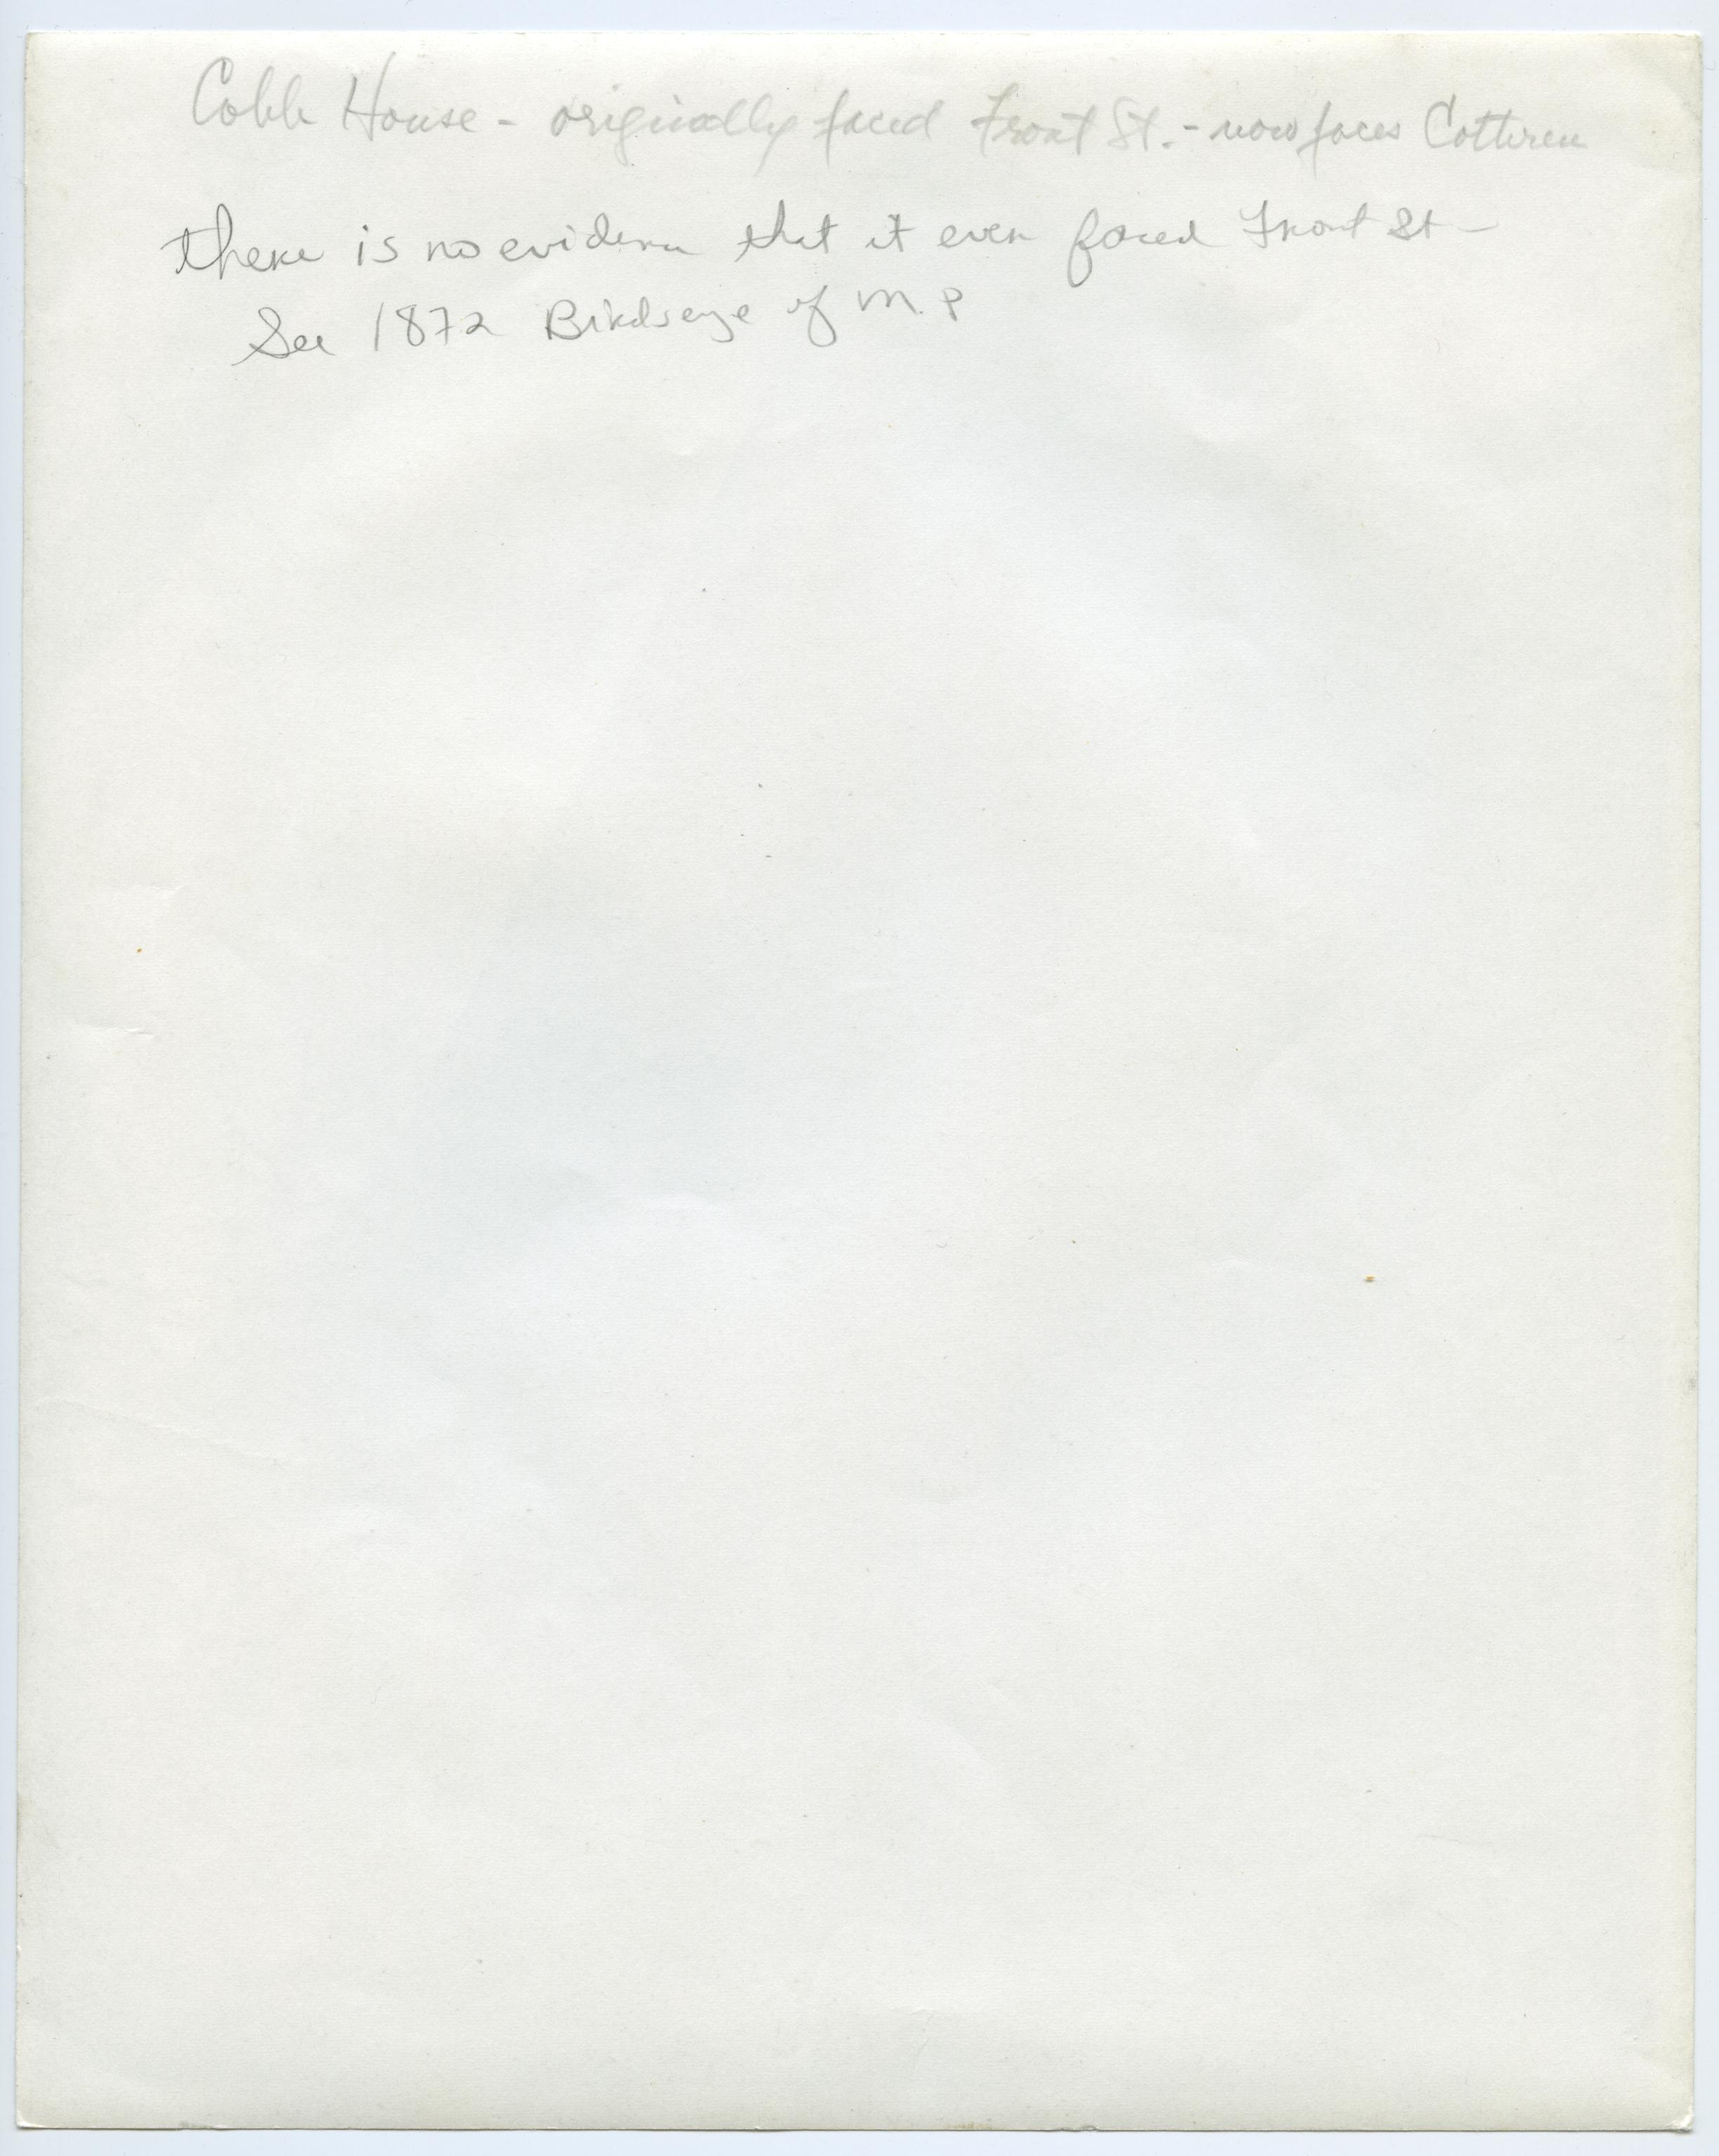 Cobb House - originally faced Front St. - now faces Cottren
there is no evidence that it ever faced Front St -
See 1872 Birdseye of M. P